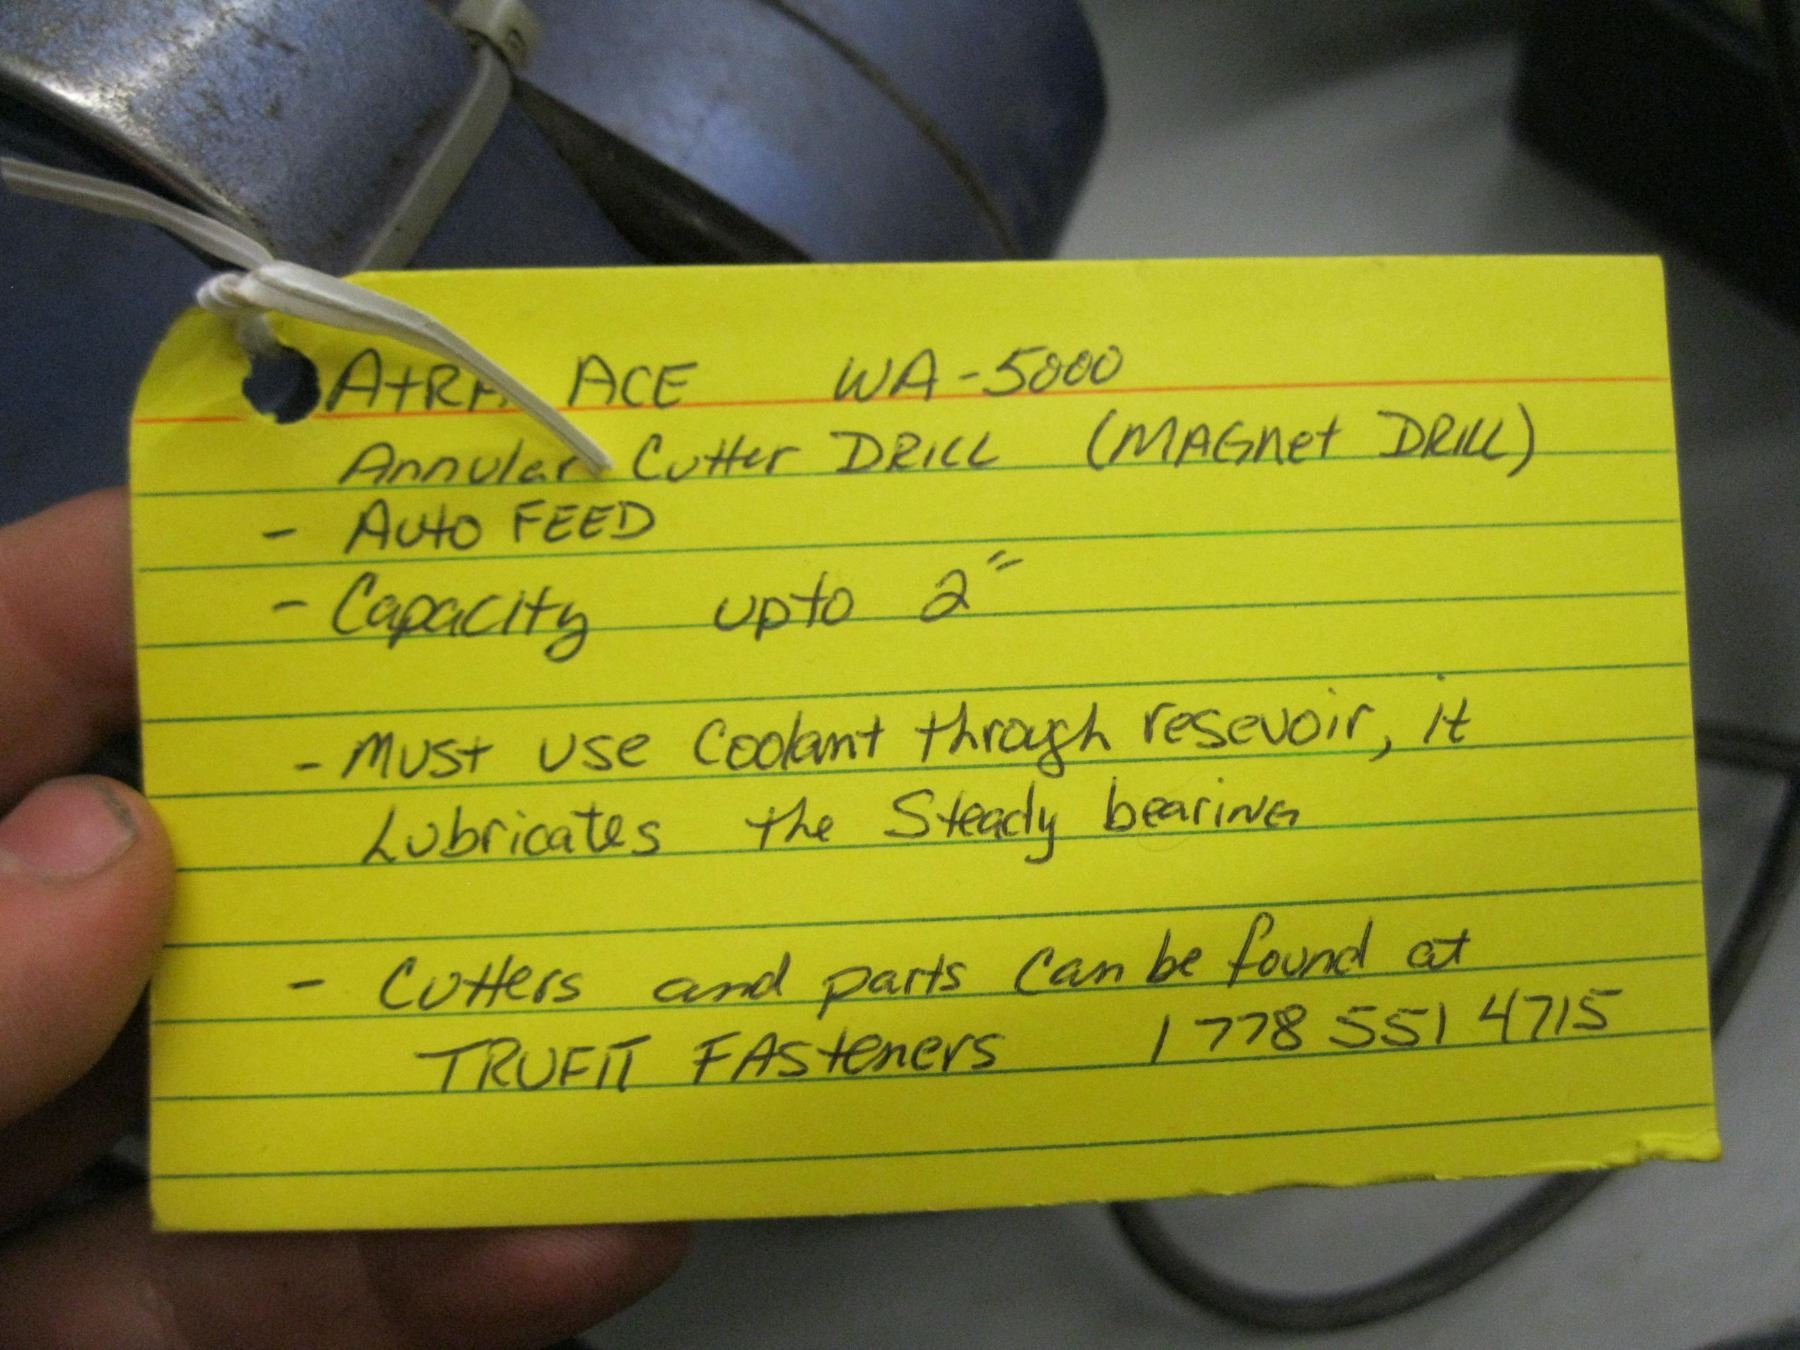 AtRA ACE WA-5000
Annular Cutter DRILL (MAGnet DRILL)
- Auto FEED
- Capacity upto 2"
- Must use Coolant through resevoir, it
Lubricates the Steady bearing
- Cutters and parts can be found at
TRUFIT FASteners 1 778 551 4715